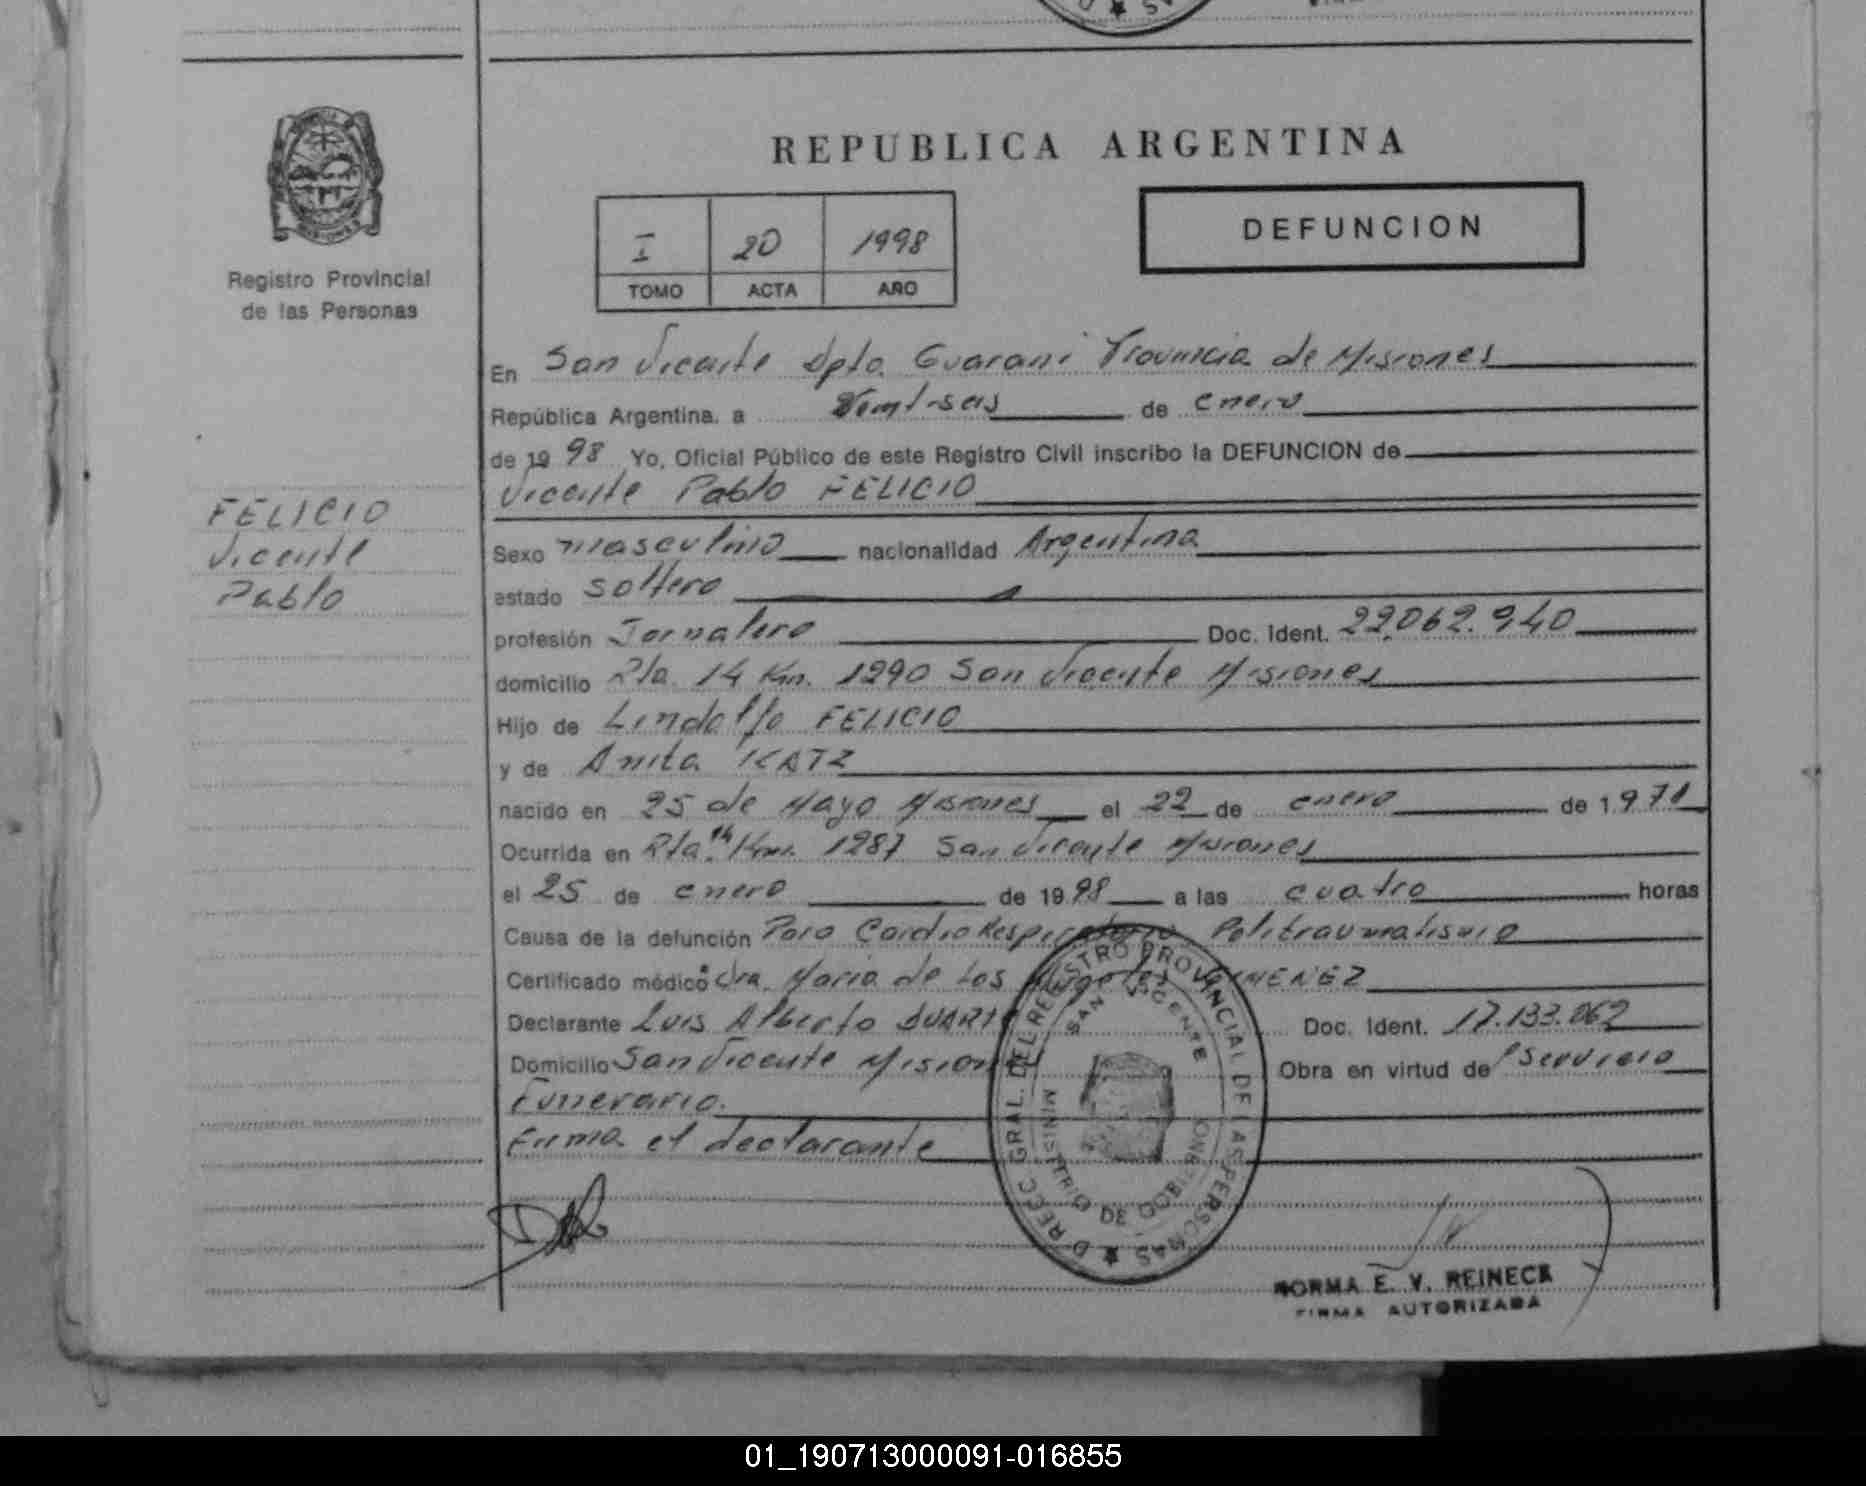 REPUBLICA ARGENTINA
Registro Provincial
de las Personas
I 20 1998
TOMO ACTA AÑO
DEFUNCION
FELICIO
Vicente
Pablo
En San Vicente Dpto. Guarani Provincia de Misiones
República Argentina, a Veintiseis de enero
de 1998 Yo, Oficial Público de este Registro Civil inscribo la DEFUNCION de
Vicente Pablo FELICIO
Sexo masculino nacionalidad Argentina
estado soltero
profesión Jornalero Doc. Ident. 22.062.940
domicilio Rta. 14 Km. 1290 San Vicente Misiones
Hijo de Lindolfo FELICIO
y de Anita KATZ
nacido en 25 de Mayo Misiones el 22 de enero de 1971
Ocurrida en Rta. 14 Km. 1287 San Vicente Misiones
el 25 de enero de 1998 a las cuatro horas
Causa de la defunción Paro Cardio Respiratorio Politraumatismo
Certificado médico: Dra. Maria de Los Angeles GIMENEZ
Declarante Luis Alberto DUARTE Doc. Ident. 17.133.062
Domicilio San Vicente Misiones Obra en virtud de P/Servicio
Funerario.
Firma el declarante
DIRECC. GRAL. DEL REGISTRO PROVINCIAL DE LAS PERSONAS
SAN VICENTE
MINISTERIO DE GOBIERNO
NORMA E. V. REINECK
FIRMA AUTORIZADA
01_190713000091-016855